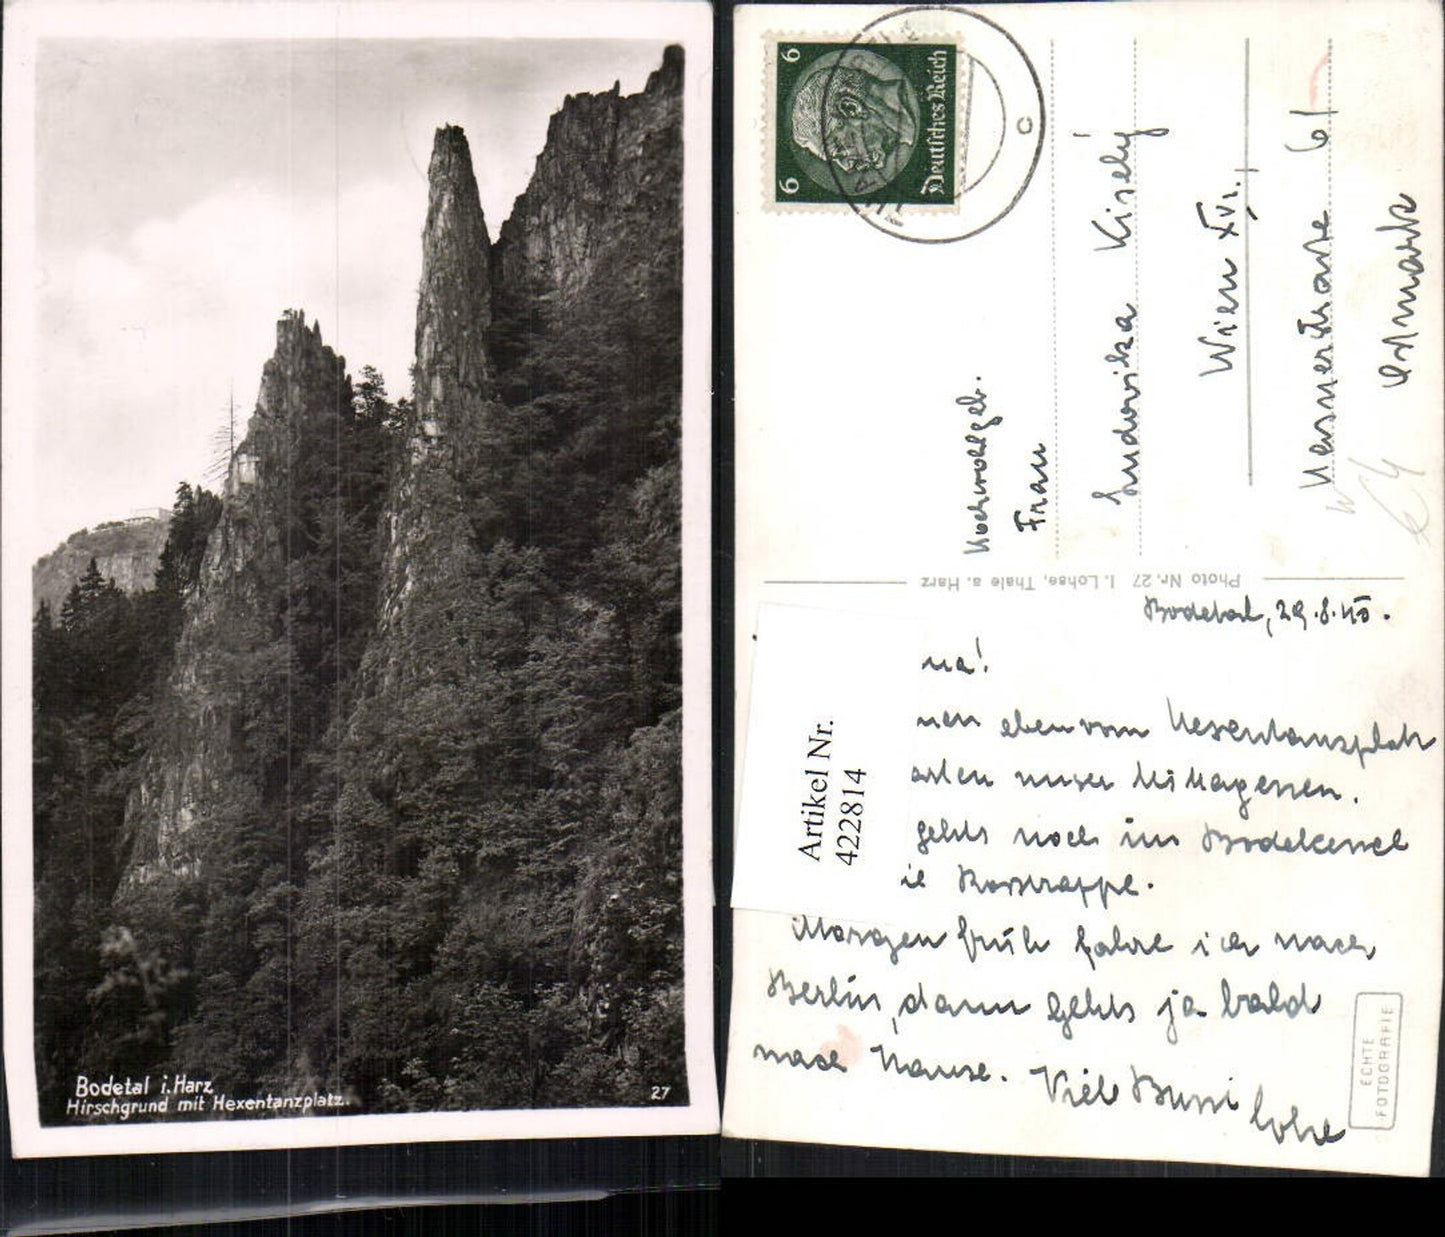 Bodetal i. Harz
Hirschgrund mit Hexentanzplatz.
27
6
6
Deutsches Reich
c
Hochwohlgeb.
Frau
Ludovika Kisely
Wien XVI.,
Hasnerstrasse 61
Ostmark
Photo Nr. 27 I. Lohse, Thale a. Harz
Artikel Nr.
422814
Bodetal, 29.8.40.
ma!
eben vom Hexentanzplatz
unser Mittagessen.
gehts noch ins Bodekessel
Rosstrappe.
Morgen früh fahre ich nach
Berlin, dann gehts ja bald
nach Hause. Viele Bussi
ECHTE
FOTOGRAFIE